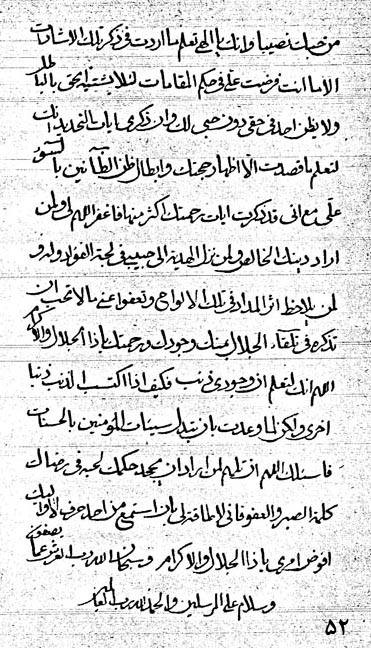 من حبك نصيبا وانك يا الهي تعلم ما اردت في ذكر تلك الاشارات
الا ما انت فرضت علي في حكم المقامات لئلا يشتبه الحق بالباطل
ولا يظن احد في حقي دون حبي لك وان ذكري ايات التحديد انك
لتعلم ما قصدت الا اظهار حجتك وابطال ظن الظآنين بالسوء
علي مع اني قد ذكرت ايات رحمتك اكثر منها فاغفر اللهم لي ولمن
اراد دينك الخالص ولمن نزل الهدية الى حبيبي في لجة الفؤاد ولده و
لمن يلاحظ اثر المداد في تلك الالواح وتعفو عني ما لا تحب ان
تذكره في تلقاء الجلال بمنك وجودك ورحمتك يا ذا الجلال والاكرام
اللهم انك لتعلم ان وجودي ذنب فكيف اذا اكتسب الذنب ذنبا
اخرى ولكن لما وعدت بان تبدل سيئات المؤمنين بالحسنات
فاسئلك اللهم ان تلهم لمن اراد ان يجحد حكمك لحبه في رضاك
كلمة الصبر والعفو فاني لا طاقة لي بان استمع من احد حرف الا واليك
افوض امري يا ذا الجلال والاكرام وسبحان الله رب العرش عما يصفون
وسلام على المرسلين والحمد لله رب العالمين
۵۲